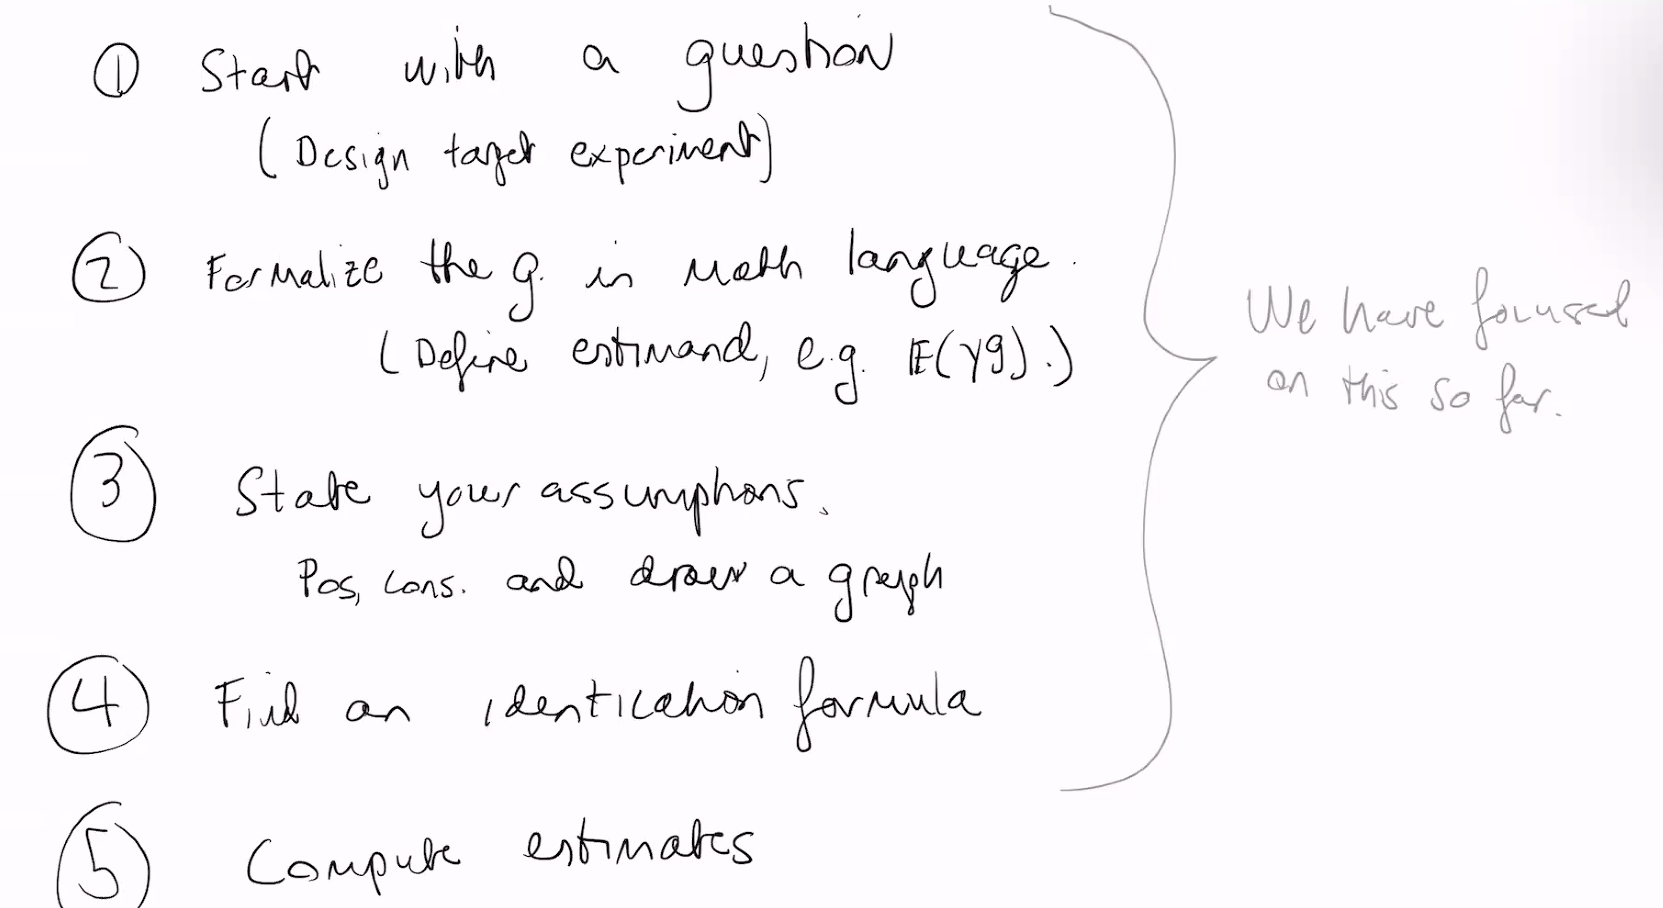 ① Start with a question
(Design target experiment)
② Formalize the q. in math language.
(Define estimand, e.g. 𝔼(Yg).)
③ State your assumptions.
Pos, cons. and draw a graph
④ Find an identication formula
⑤ Compute estimates
We have focused
on this so far.